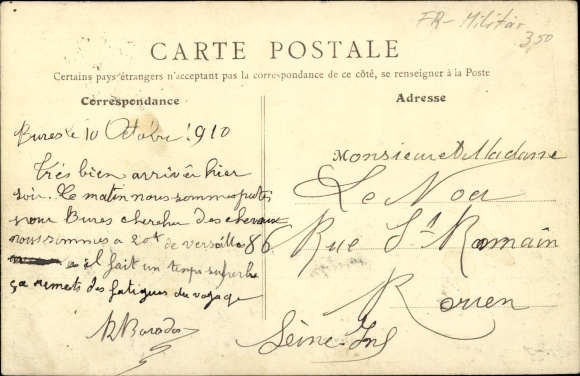 FR - Militär
3,50
CARTE POSTALE
Certains pays étrangers n'acceptant pas la correspondance de ce côté, se renseigner à la Poste
Correspondance
Adresse
Bures le 10 Octobre 1910
Très bien arrivér hier
soir. Ce matin nous sommes partis
pour Bures chercher des chevaux
nous sommes a 20k de versailles
a il fait un temps superbe
ça remets des fatigues du voyage
Monsieur et Madame
Le Noa
86 Rue St Romain
Rouen
Seine-Inf